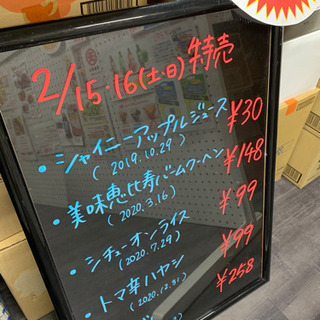 2/15・16(土・日)特売
・シャイニーアップルジュース ¥30
(2019.10.29)
・美味恵比寿バームクーヘン ¥148
(2020.3.16)
・シチューオンライス ¥99
(2020.7.29)
・トマ辛ハヤシ ¥99
(2020.12.31)
¥258